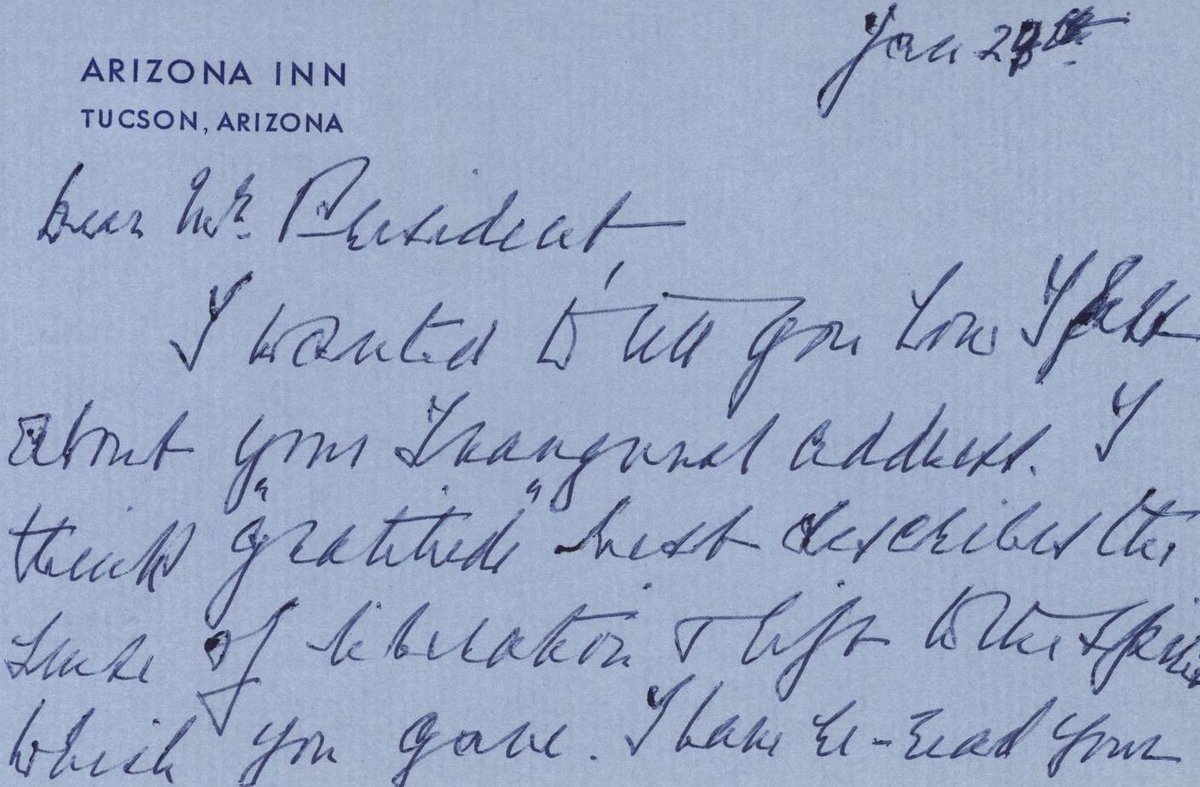 ARIZONA INN
TUCSON, ARIZONA
Jan
Dear Mr. President,
I wanted to tell you how I felt
about your Inaugural address. I
think "gratitude" best describes the
sense of liberation & lift to the spirit
which you gave. I have re-read your